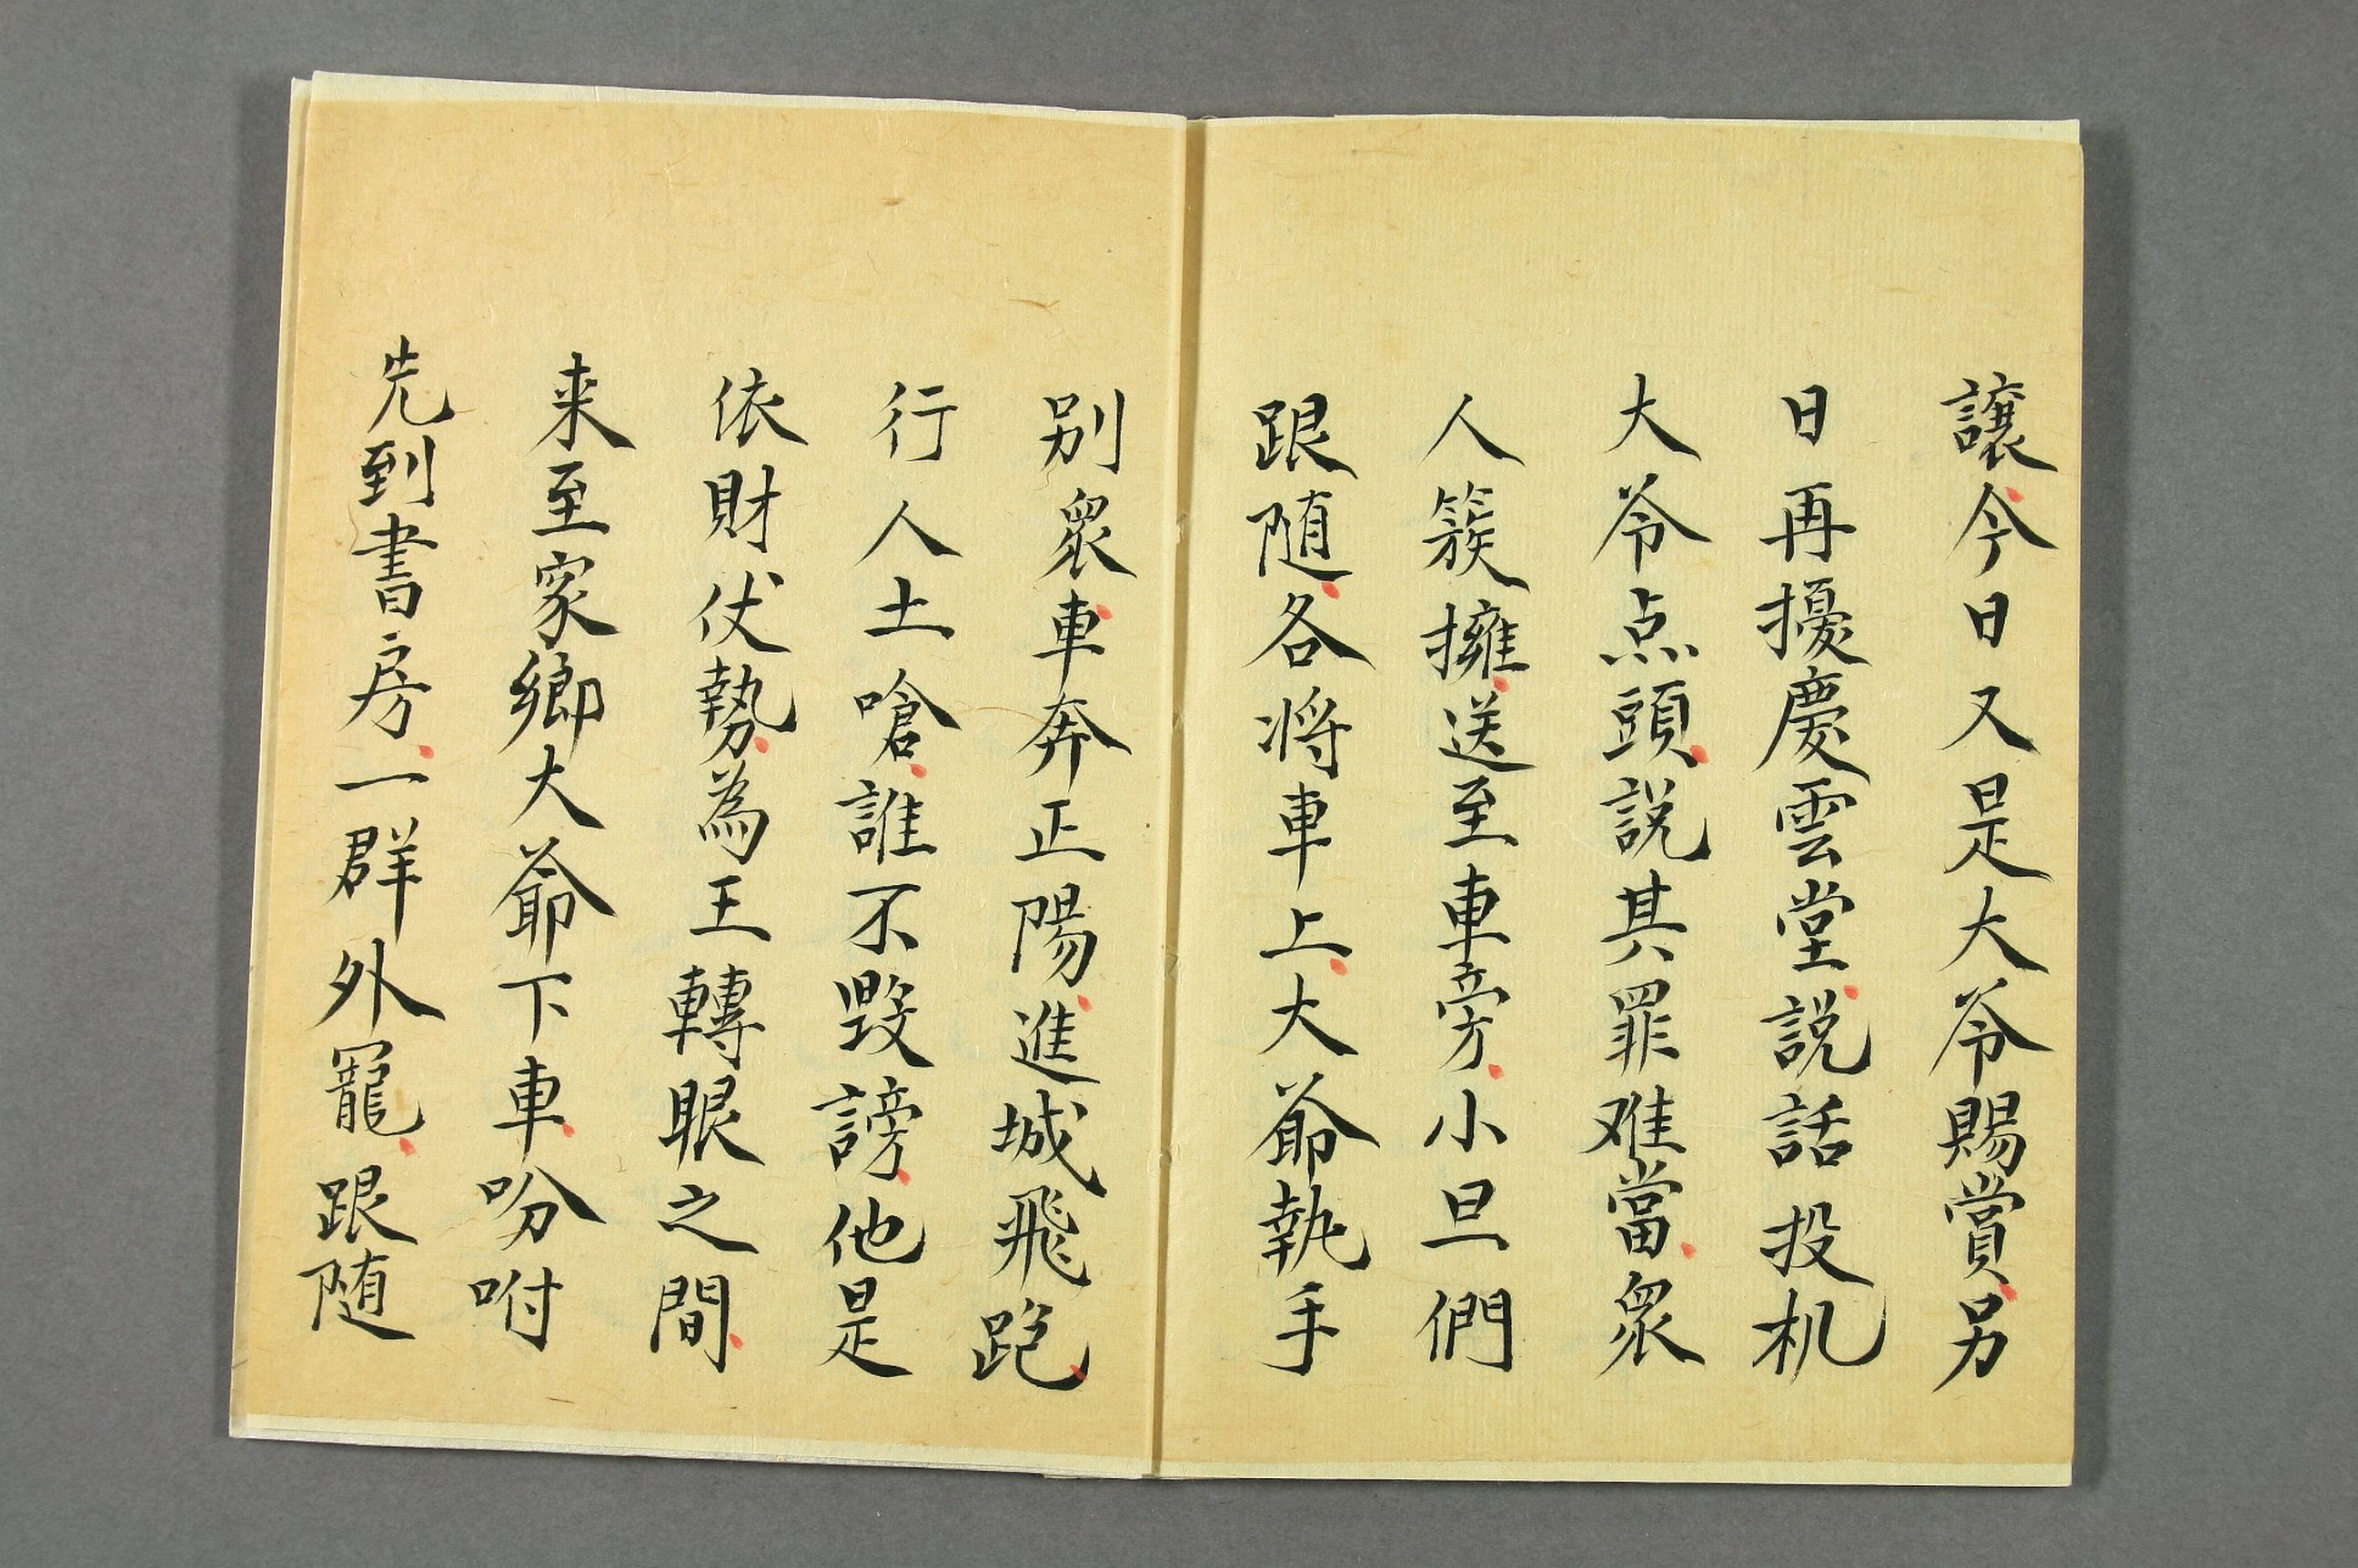 讓今日又是大爷賜賞另
日再擾慶雲堂說話投机
大爷点頭說其罪难當眾
人簇擁送至車旁小旦們
跟随各将車上大爺執手
别眾車奔正陽進城飛跑
行人土嗆誰不毀謗他是
依財仗勢為王轉眼之間
来至家鄉大爺下車吩咐
先到書房一群外寵跟随